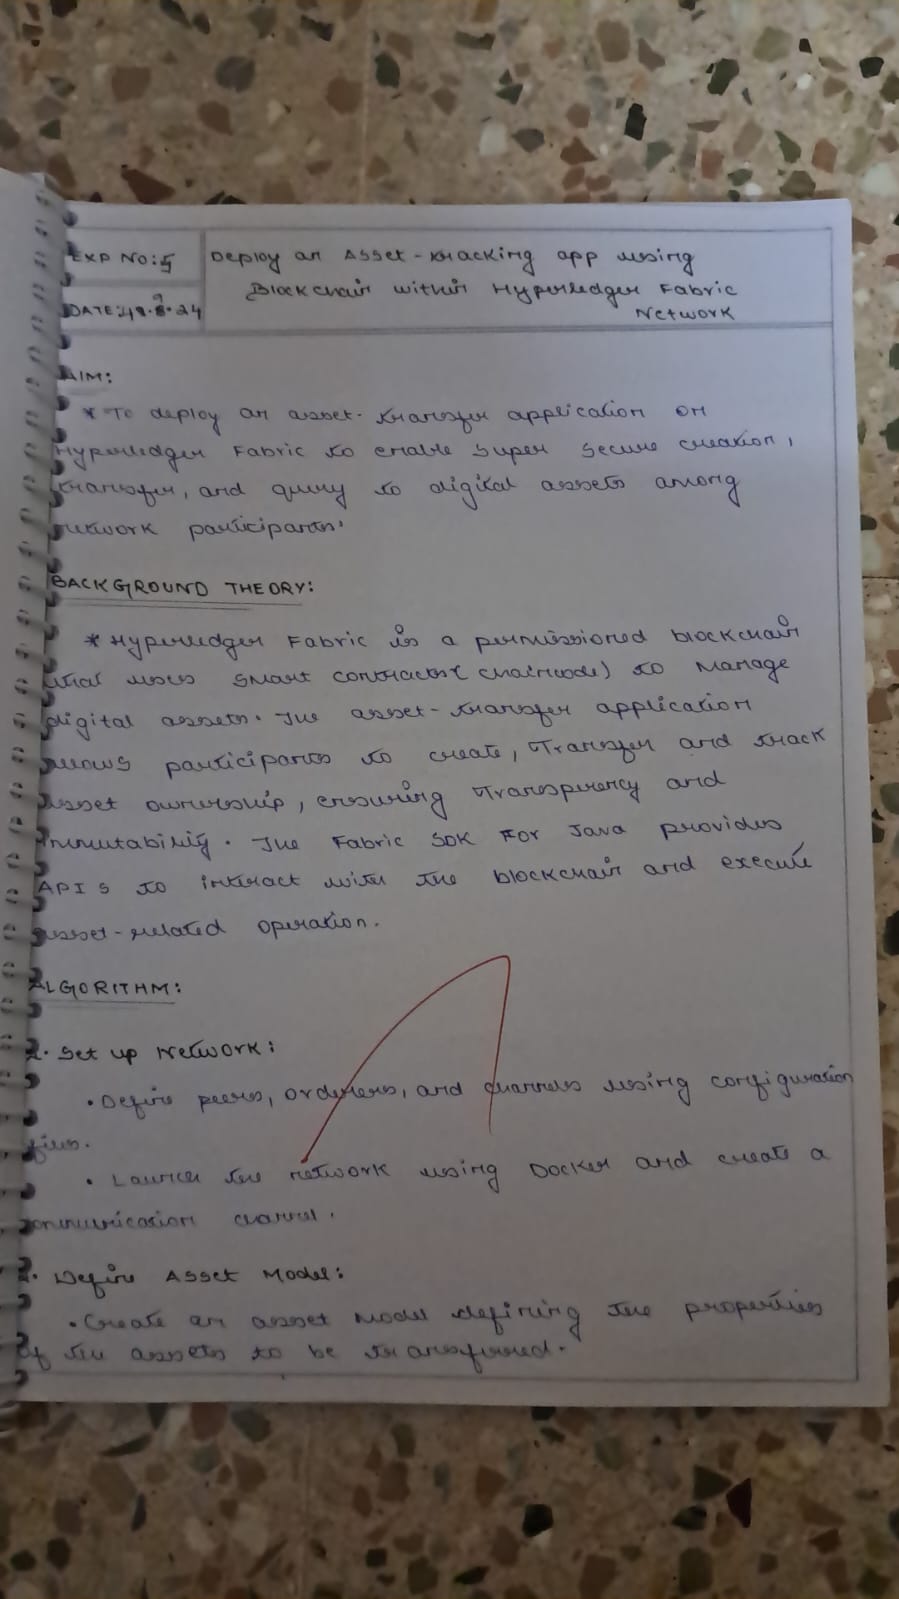 EXP NO: 5
Deploy an Asset-tracking app using
Blockchain within Hyperledger Fabric
Network
DATE: 9.24
AIM:
* To deploy an asset-transfer application on
Hyperledger Fabric to enable super secure creation,
transfer, and query to digital assets among
network participants.
BACKGROUND THEORY:
* Hyperledger Fabric is a permissioned blockchain
that uses smart contracts (chaincode) to manage
digital assets. The asset-transfer application
allows participants to create, Transfer and track
asset ownership, ensuring Transparency and
immutability. The Fabric SDK For Java provides
APIs to interact with the blockchain and execute
asset-related operation.
ALGORITHM:
1. Set up Network:
• Define peers, orderers, and channels using configuration
files.
• Launch the network using Docker and create a
communication channel.
2. Define Asset Model:
• Create an asset model defining the properties
of the assets to be transferred.